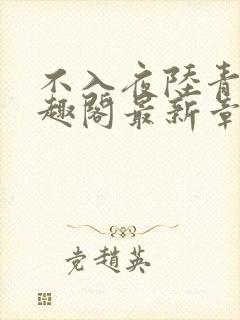 不入夜陸青
趣閣最新章
党趙英